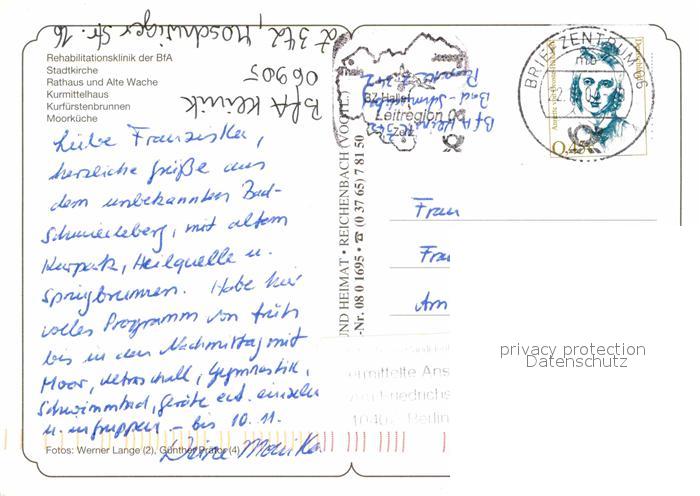 Rehabilitationsklinik der BfA
Stadtkirche
Rathaus und Alte Wache
Kurmittelhaus
Kurfürstenbrunnen
Moorküche
BfA Klinik
06905
Z 342,
Str. 16
Liebe Franziska,
herzliche Grüße aus
dem unbekannten Bad-
Schmiedeberg, mit altem
Kurpark, Heilquelle u.
Springbrunnen. Habe hier
volles Programm von früh
bis in den Nachmittag mit
Moor, Ultraschall, Gymnastik,
Schwimmbad, Geräte etc. einzeln
u. in Gruppen – bis 10.11.
Deine Monika
Fotos: Werner Lange (2), Günther (4)
UND HEIMAT • REICHENBACH (VOGTL.)
-Nr. 08 0 1695 • ☎ (0 37 65) 7 81 50
BfA Klinik
Bad-Schmiedeberg
Leitregion 0
BRIEFZENTRUM 06
0,45
Frau
Am
ermittelte Ans
Am Friedrichs
Berlin
privacy protection
Datenschutz